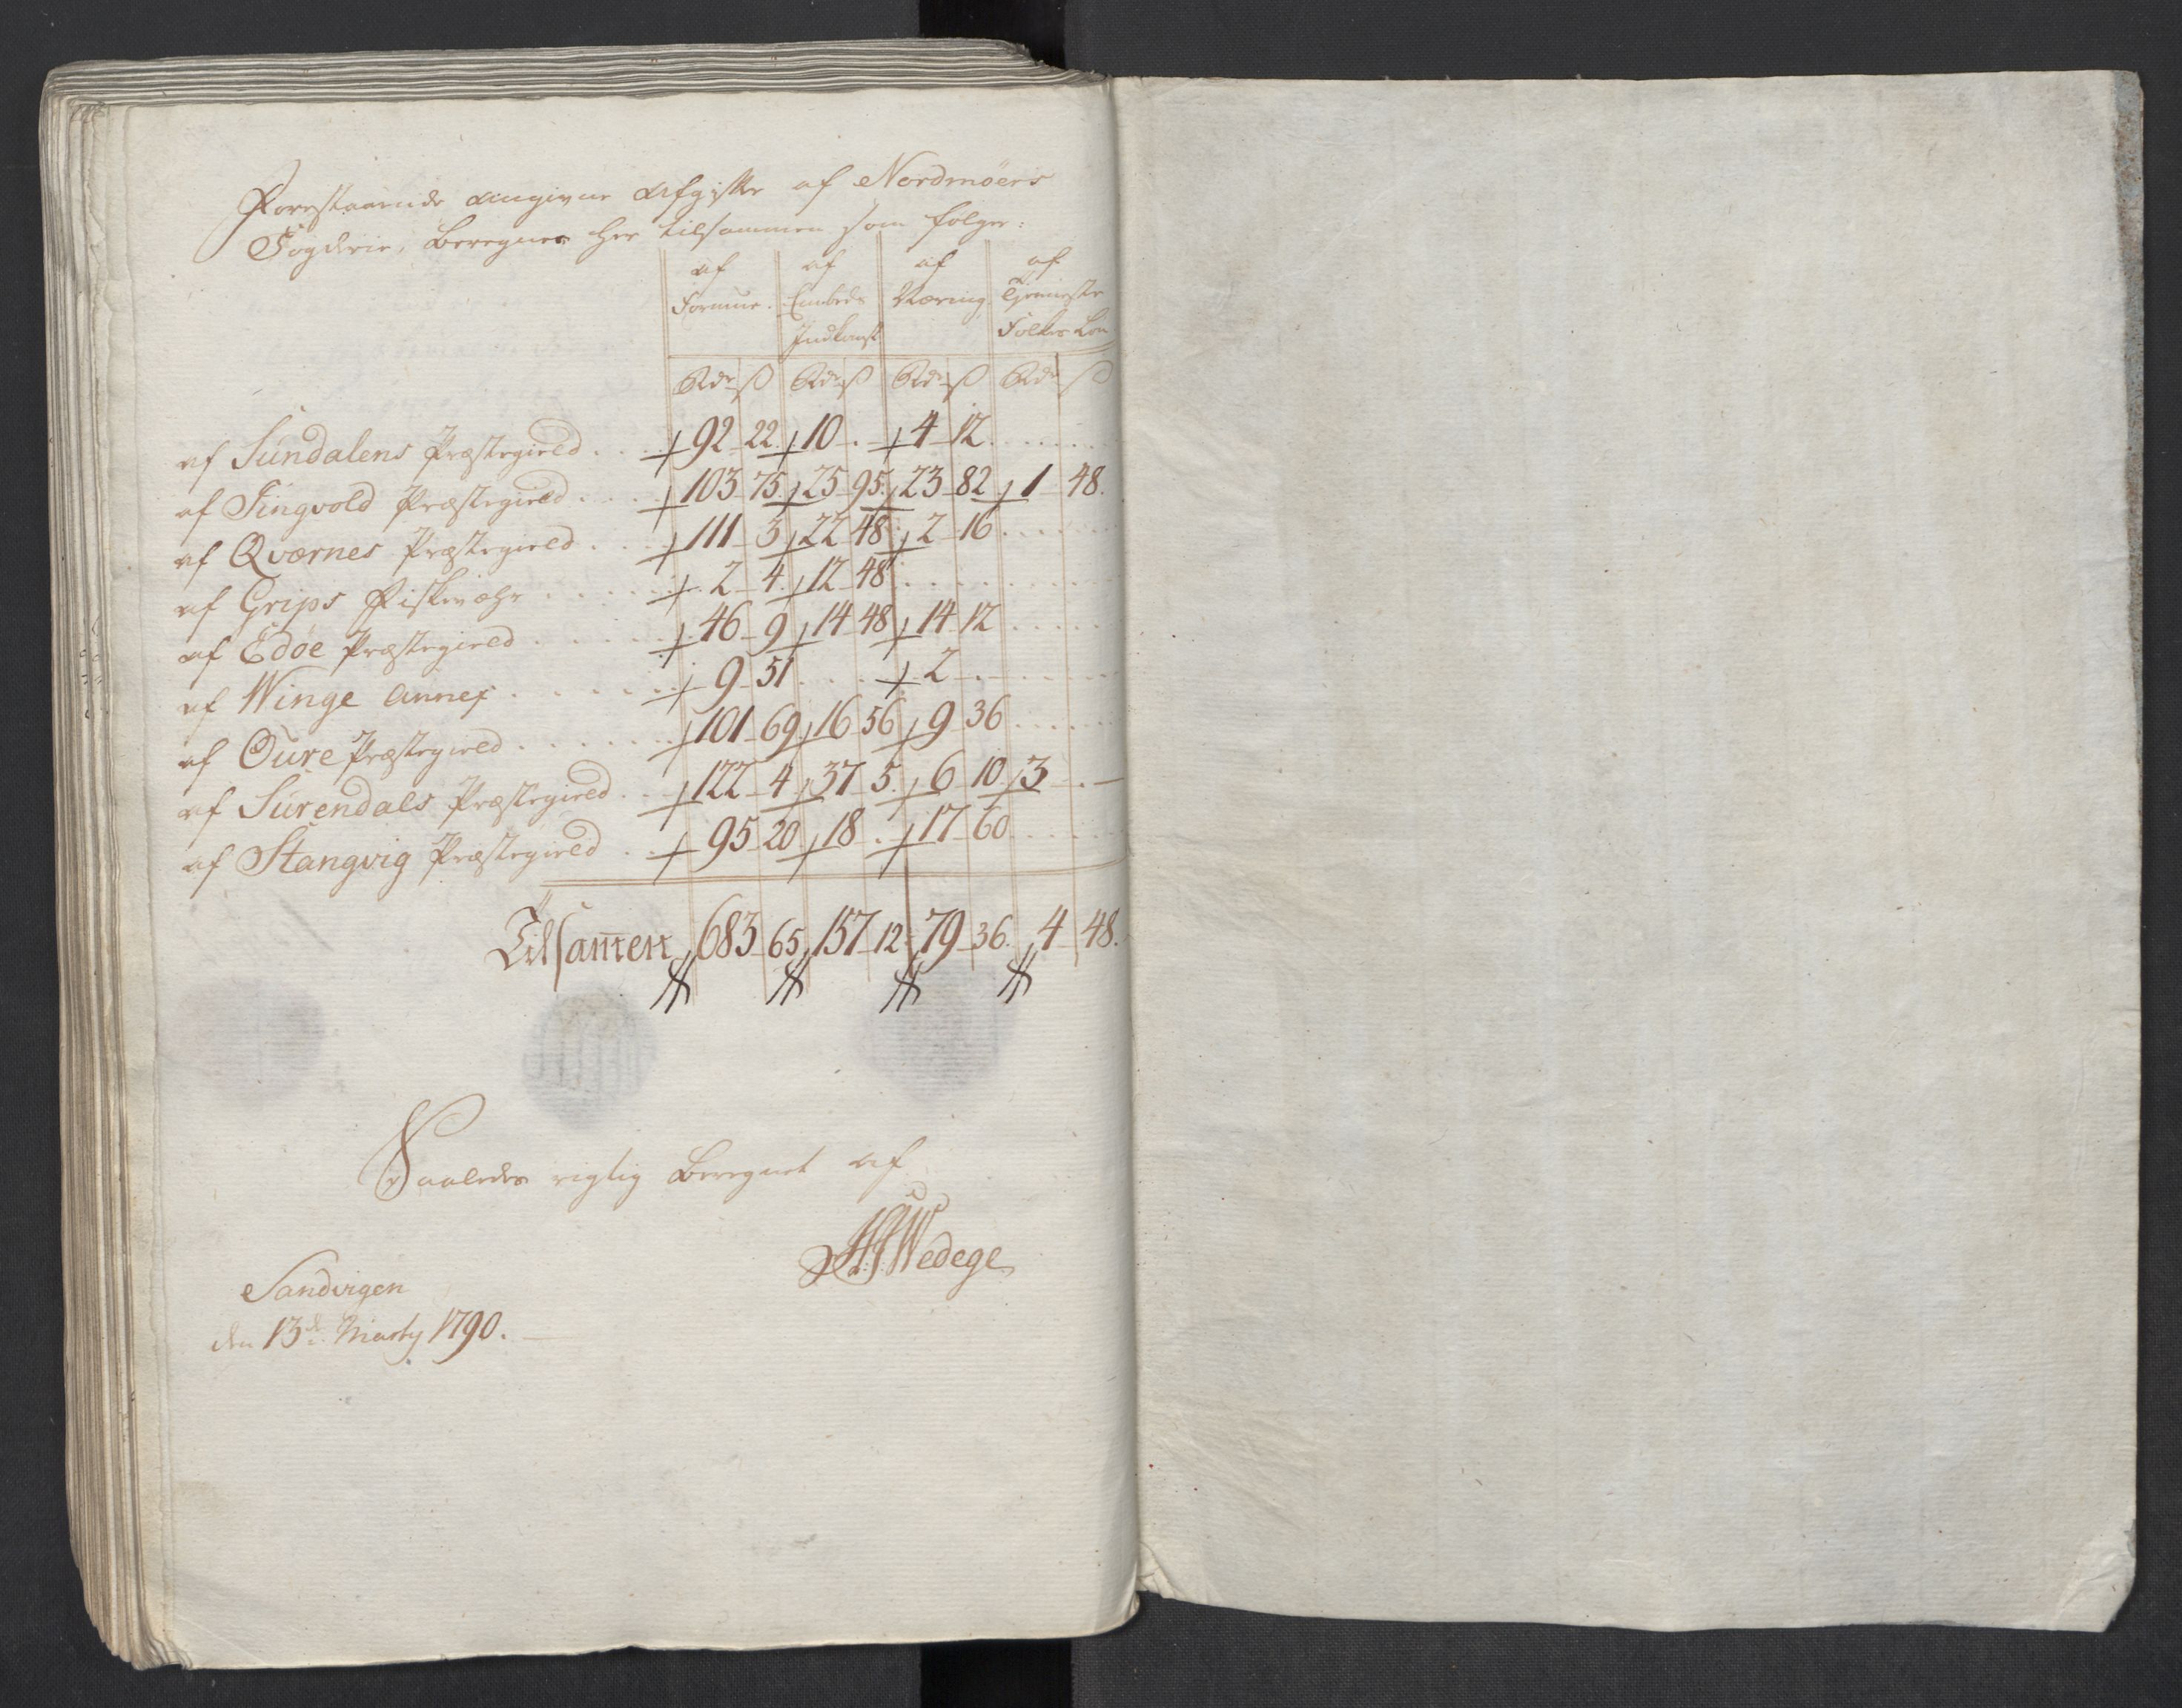 Forestaaende angivne Afgifter af Nordmøers
Fogderie, Beregnes her tilsammen som følger:
af Formue. af Embeds Indkomst af Næring af Tjeneste Folkes Løn
Rdr ß Rdr ß Rdr ß Rdr ß
af Sundalens Præstegield . . 92 22. 10 . 4 12. . . . .
af Tingvold Præstegield . . . . 103 75. 25 95. 23 82 1 48.
af Qværnes Præstegield . . . 111 3 22 48. 2 16 . . . .
af Grips Fiskevæhr . . . . . 2 4. 12 48 . . . . . . .
af Edøe Præstegield . . . . . 46 9 14 48 14 12 . . . .
af Winge Annex . . . . . . 9 51 . . . 2 . . . . .
af Oure Præstegield . . . . . . 101 69 16 56 9 36 . . . .
af Surendals Præstegield . . . 122 4 37 5. 6 10 3 . —
af Stangvig Præstegield . . . 95 20 18 . 17 60 . . . .
Tilsam̅en 683 65 157 12 79 36. 4 48.
Saaledes rigtig Beregnet af
Wedege
Sandvigen
den 13de Marty 1790.